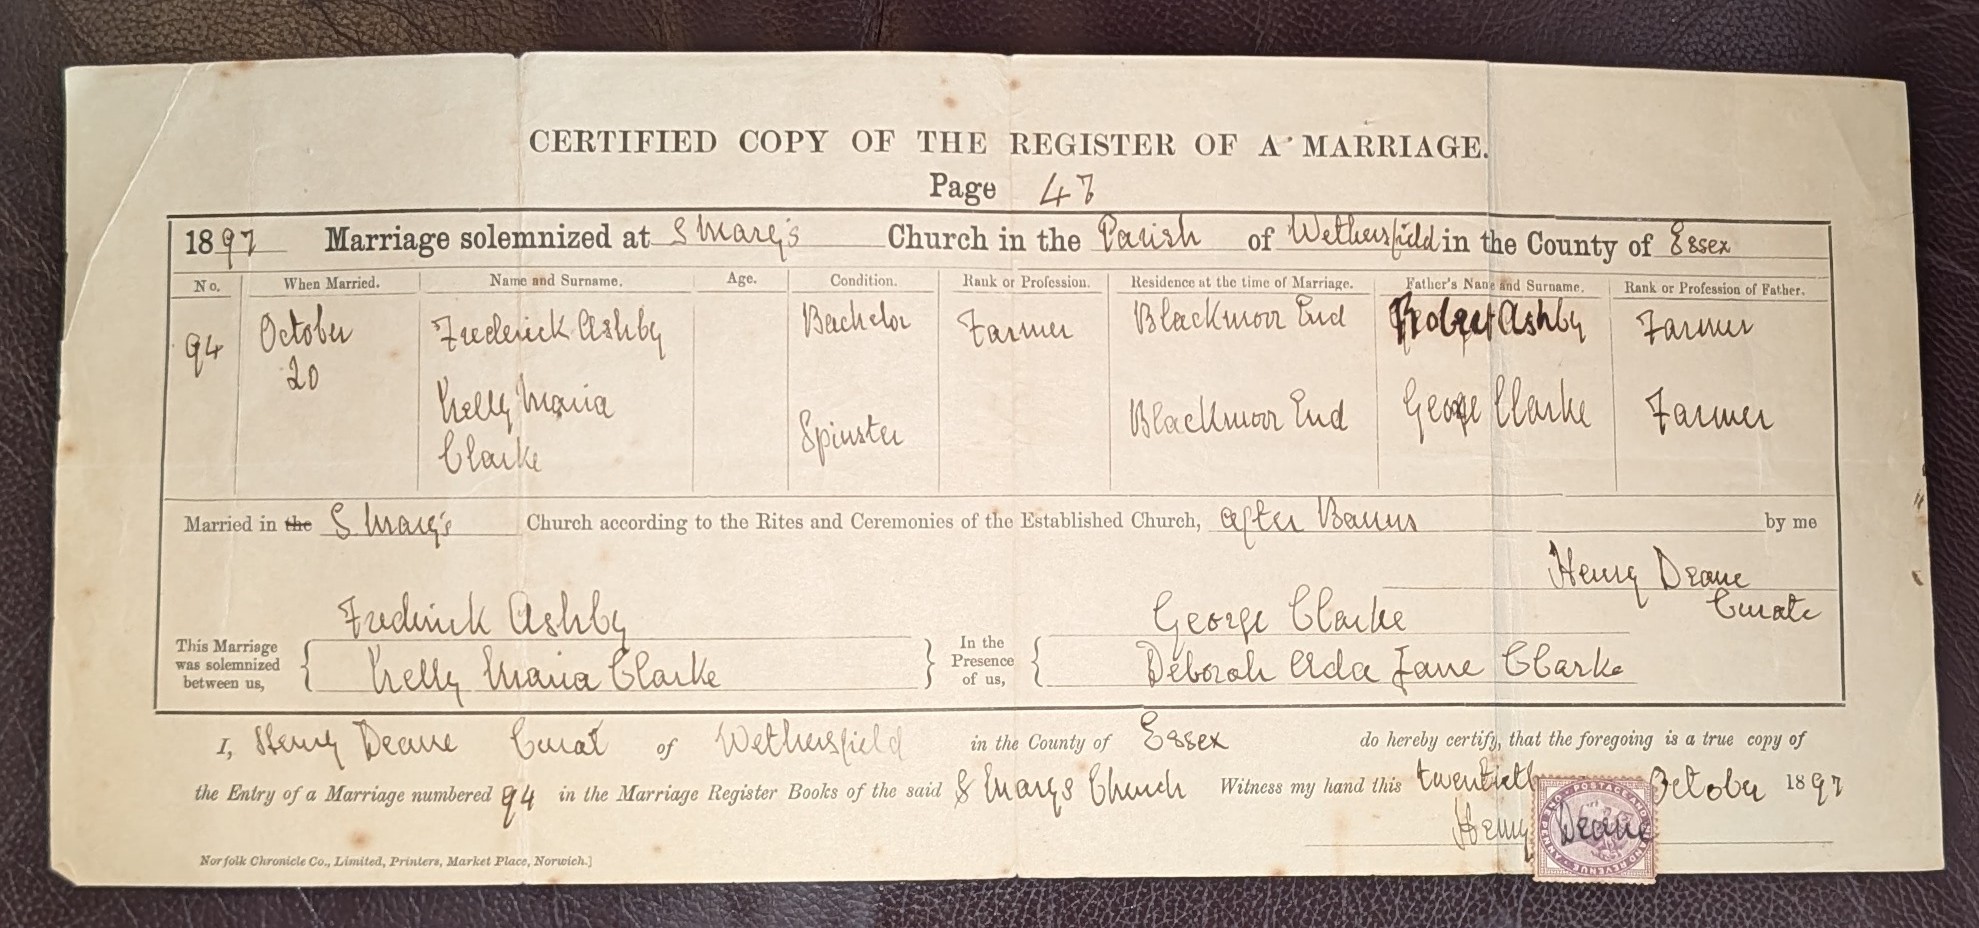 CERTIFIED COPY OF THE REGISTER OF A MARRIAGE.
Page 47
1897 Marriage solemnized at S Mary's Church in the Parish of Wethersfield in the County of Essex
No. When Married. Name and Surname. Age. Condition. Rank or Profession. Residence at the time of Marriage. Father's Name and Surname. Rank or Profession of Father.
94 October 20 Frederick Ashby Bachelor Farmer Blackmoor End Robert Ashby Farmer
Kelly Maria Clarke Spinster Blackmoor End George Clarke Farmer
Married in the S. Mary's Church according to the Rites and Ceremonies of the Established Church, after Banns by me
Henry Deane
Curate
This Marriage was solemnized between us, Frederick Ashby In the Presence of us, George Clarke
Kelly Maria Clarke Deborah Ada Jane Clarke
I, Henry Deane Curat of Wethersfield in the County of Essex do hereby certify, that the foregoing is a true copy of
the Entry of a Marriage numbered 94 in the Marriage Register Books of the said S Marys Church Witness my hand this twentieth October 1897
Henry Deane
POSTAGE AND INLAND REVENUE ONE PENNY
Norfolk Chronicle Co., Limited, Printers, Market Place, Norwich.]